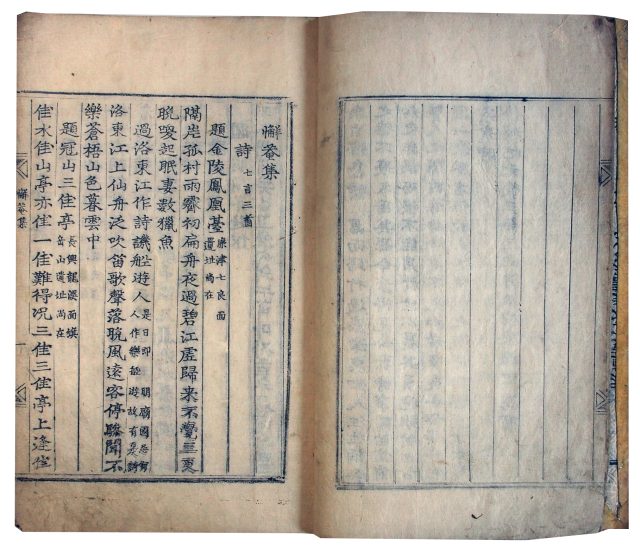 懈菴集
詩 七言三首
題金陵鳳凰臺 康津七良面遺址尚在
隔岸孤村雨霽初扁舟夜過碧江虛歸来不覺三更
晩喚起眠妻數獵魚
過洛東江作詩譏船遊人 是日即 明廟國忌有人作樂船遊故有是詩
洛東江上仙舟泛吹笛歌聲落晩風遠客停驂聞不
樂蒼梧山色暮雲中
題冠山三佳亭 長興龍溪面旗岳山遺址尚在
佳水佳山亭亦佳一佳難得况三佳三佳亭上逢佳
懈菴集